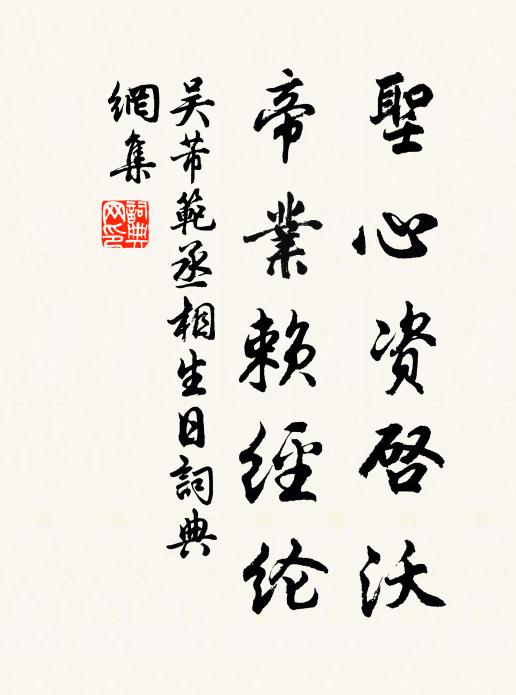 聖心資啓沃
帝業賴經纶
吴芾範丞相生日詞典
網集
詞典
网印